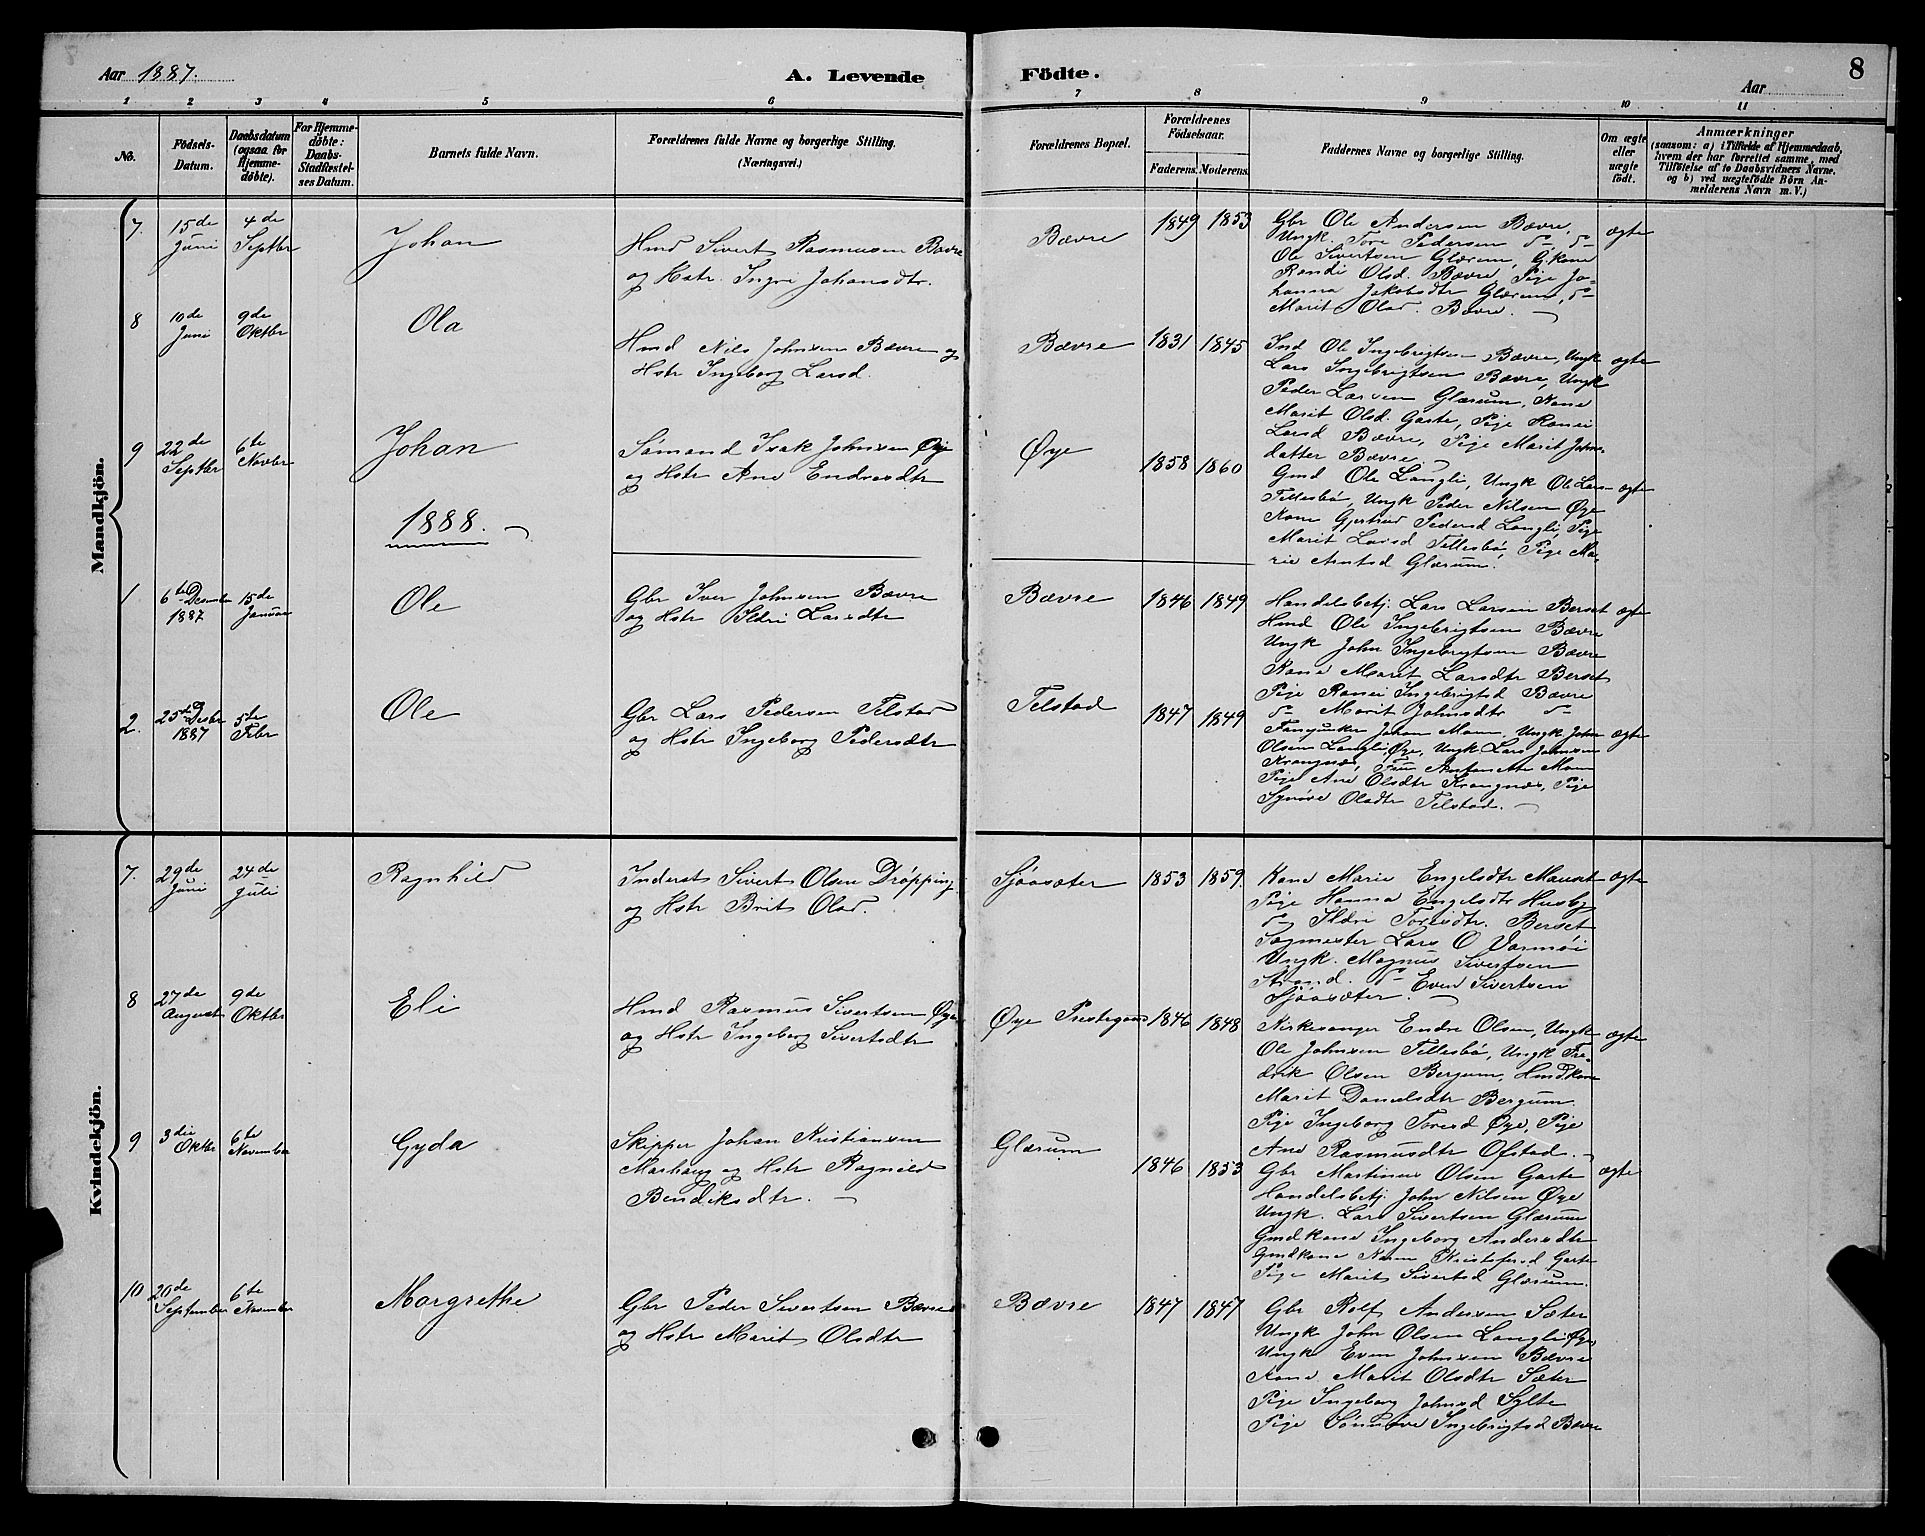 Aar 1887.
A. Levende Födte.
Aar
8
1 2 3 4 5 6 7 8 9 10 11
No.
Födsels-
Datum.
Daabsdatum
(ogsaa for
Hjemme-
döbte).
For Hjemme-
döbte:
Daabs-
Stadfæstel-
ses Datum.
Barnets fulde Navn.
Forældrenes fulde Navne og borgerlige Stilling.
(Næringsvei.)
Forældrenes Bopæl.
Forældrenes
Födselsaar.
Faderens. Moderens.
Faddernes Navne og borgerlige Stilling.
Om ægte
eller
uægte
födt.
Anmærkninger
(saasom: a) i Tilfælde af Hjemmedaab,
hvem der har forrettet samme, med
Tilföielse af to Daabsvidners Navne.
og b) ved uægtefödte Börn An-
melderens Navn m. V.)
Mandkjön.
7. 15de Juni
4de Septbr
Johan
Hmd Sivert Rasmusen Bævre
og Hstr. Ingri Johansdtr.
Bævre
1849 1853
Gbr Ole Andersen Bævre,
Ungk. Tore Pedersen do do
Ole Sivertsen Glærem, Gkone
Randi Olsd. Bævre, Pige Jo-
hanna Jakobsdtr Glærem, do
Marit Olsd. Bævre.
ægte
8 10de Juni
9de Oktbr
Ola
Hmd Nils Johnsen Bævre og
Hstr Ingeborg Larsd.
Bævre
1831 1845
Ind Ole Ingebrigtsen Bævre, Ungk
Lars Ingebrigtsen Bævre, Ungk
Peder Larsen Glærum, Kone
Marit Olsd. Garte, Pige Ranei
Larsd Bævre, Pige Marit Johns-
datter Bævre
ægte
9 22de Septbr
6te Novbr
Johan
Sømand Isak Johnsen Øye
og Hstr Ane Endresdtr
Øye
1858 1860
Gmd Ole Langli, Ungk Ole Lars-
Tellesbø, Ungk Peder Nilsen Øye
Kone Gjertrud Pedersd Langli, Pige
Marit Larsd Tellesbø, Pige Ma-
rie Arntsd Glærum.
ægte
1888.
1 6te Desembr 1887
15de Januar
Ole
Gbr Iver Johnsen Bævre
og Hstr Ildri Larsdtr
Bævre
1846 1849
Handelsbetj. Lars Larsen Berset
Hmd Ole Ingebrigtsen Bævre
Ungk John Ingebrigtsen Bævre
Kone Marit Larsdtr Berset
Pige Ranei Ingebrigtsd Bævre
do Marit Johnsdtr do
ægte
2. 25de Desbr 1887
5te Febr
Ole
Gbr Lars Pedersen Telstad
og Hstr Ingeborg Pedersdtr
Telstad
1847 1849
Johan Moen, Ungk John
Olsen Langli, Øye, Ungk Lars Johnsen
Krangnæs, Fru Antonette Moen
Pige Ane Olsdtr Krangnæs, Pige
Synøve Olsdtr Telstad.
ægte
Kvindekjön.
7. 29de Juni
24de Juli
Ragnhild
Inderst Sivert Olsen Drøpping
og Hstr Brit Olsd.
Sjøasæter
1853 1859.
Kone Marie Engelsdtr Mauset
Pige Hanna Engelsdtr Husby
do Ildri Toresdtr. Berset
Sagmester Lars O Varmøi
Ungk. Magnus Sivertsen
Strand. do Even Sivertsen
Sjøasæter.
ægte
8 27de August
9de Oktbr
Eli
Hmd Rasmus Sivertsen Øye
og Hstr Ingeborg Sivertsdtr
Øye Prestegaard
1846 1848
Kirkesanger Endre Olsen, Ungk
Ole Johnsen Tellesbø, Ungk Fre-
drik Olsen Bergum, Hmdkone
Marit Danielsdtr Bergum.
Pige Ingeborg Toresd Øye, Pige
Ane Rasmusdtr Ofstad.
ægte
9 3die Oktbr
6te November
Gyda
Skipper Johan Kristiansen
Marhaug og Hstr Ragnild
Bendiksdtr.
Glærum
1846 1853
Gbr Martinus Olsen Garte
Handelsbetj. John Nilsen Øye
Ungk. Lars Sivertsen Glærum
Gmdkone Ingeborg Andersdtr
Gmdkone Karen Kristofersd Garte
Pige Marit Sivertsd Glærum.
ægte
10 20de September
6te November
Margrethe
Gbr Peder Sivertsen Bævre
og Hstr Marit Olsdtr
Bævre
1847 1847
Gbr Rolf Andersen Sæter
Ungk John Olsen Langli Øye,
Ungk Even Johnsen Bævre
Kone Marit Olsdtr Sæter
Pige Ingeborg Johnsd Sylte
Pige Synnøve Ingebrigtsd Bævre